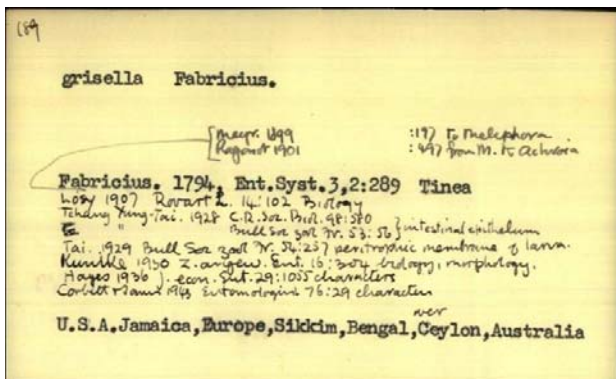 189
grisella Fabricius.
Meyr. 1899 :197 to Meliphora
Ragonot 1901 :497 from M. to Achroia
Fabricius. 1794, Ent.Syst.3,2:289 Tinea
Lösy 1907 Rovart L. 14:102 Biology
Tchang Yung-Tai. 1928 C.R.Soc.Biol. 98:580
" Bull Soc zool Fr. 53:56 } intestinal epithelium
Tai. 1929 Bull Soc zool Fr. 54:257 peritrophic membrane of larva.
Kunike 1930 Z. angew. Ent. 16:304 biology, morphology.
Hayes 1936 J. econ. Ent. 29:1055 characters
1943 Entomologist 76:29 characters
U.S.A.Jamaica,Europe,Sikkim,Bengal,Ceylon,Australia